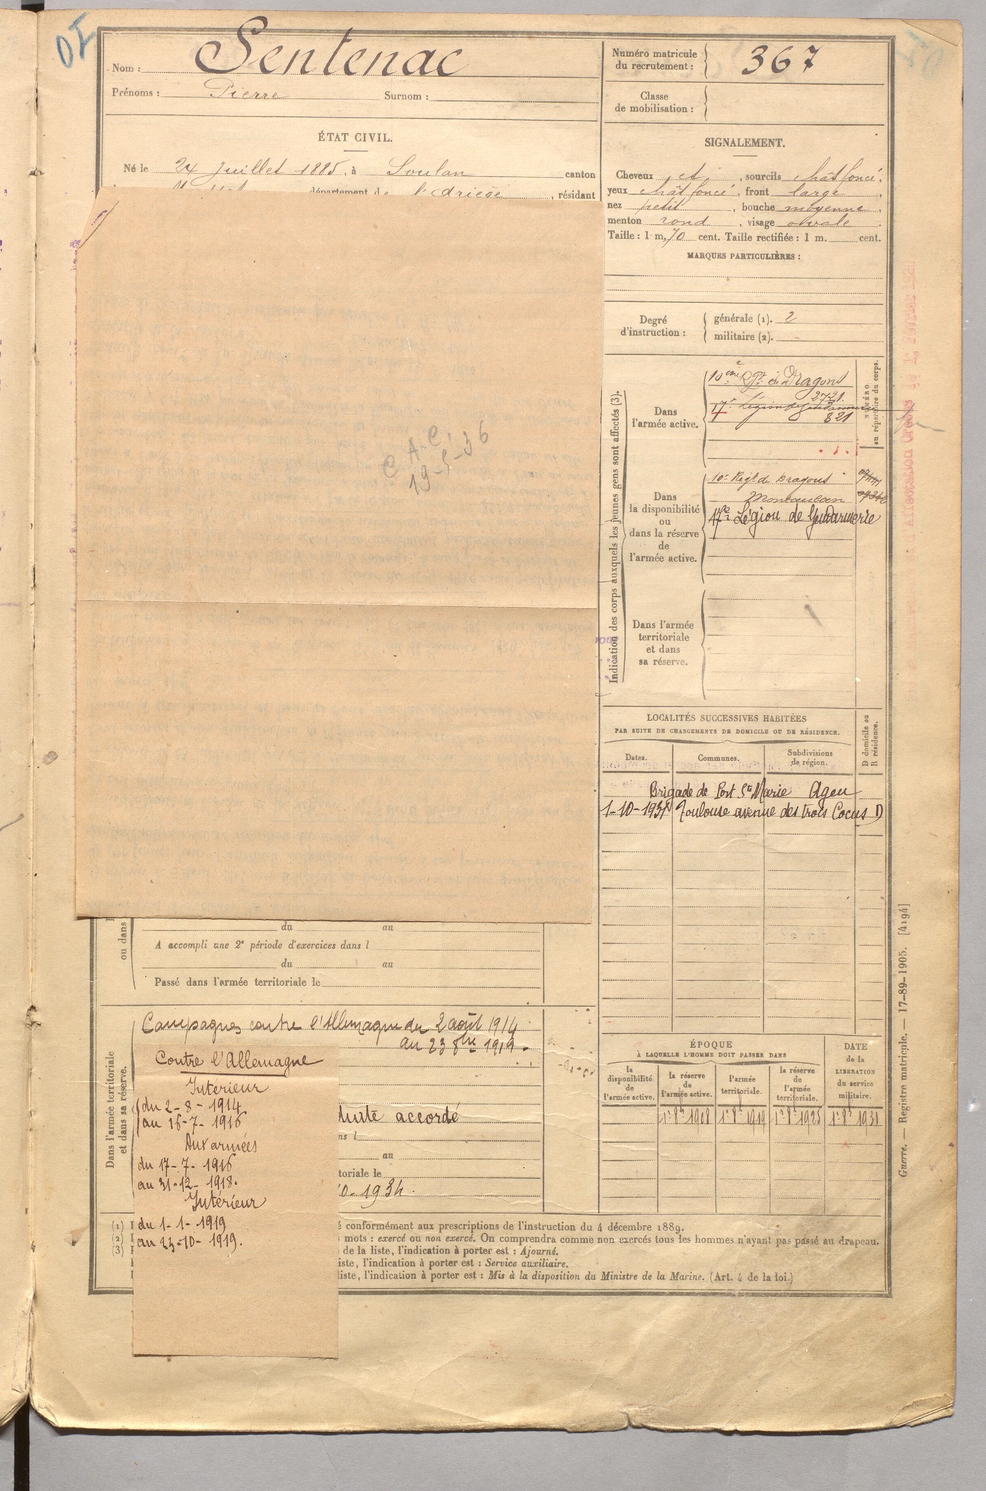 Nom : Sentenac
Prénoms : Pierre Surnom :
ÉTAT CIVIL.
Né le 24 Juillet 1885, à Soulan canton
département de l'Ariège, résidant
Numéro matricule
du recrutement : 367
Classe
de mobilisation :
SIGNALEMENT.
Cheveux et, sourcils chât foncé,
yeux chât foncé, front large,
nez petit, bouche moyenne,
menton rond, visage ovale
Taille : 1 m. 70 cent. Taille rectifiée : 1 m. cent.
MARQUES PARTICULIÈRES :
Degré
d'instruction :
générale (1). 2
militaire (2).
Indication des corps auxquels les jeunes gens sont affectés (3).
NUMÉRO
au répertoire du corps.
Dans
l'armée active.
10ème Rgt de Dragons
17e Légion de Gendarmerie
821
Dans
la disponibilité
ou
dans la réserve
de
l'armée active.
10e Régt de Dragons
Montauban
17e Légion de Gendarmerie
Dans l'armée
territoriale
et dans
sa réserve.
C A C
19-5-36
LOCALITÉS SUCCESSIVES HABITÉES
PAR SUITE DE CHANGEMENTS DE DOMICILE OU DE RÉSIDENCE.
D domicile ou
R résidence.
Dates. Communes. Subdivisions
de région.
Brigade de Port Ste Marie Agen
1-10-1934 Toulouse avenue des trois Cocus D
ou dans
du au
A accompli une 2e période d'exercices dans l
du au
Passé dans l'armée territoriale le
Dans l'armée territoriale
et dans sa réserve.
Campagnes contre l'Allemagne du 2 août 1914
au 23 8bre 1919.
Contre l'Allemagne
Intérieur
du 2-8-1914
au 16-7-1916
Aux armées
du 17-7-1916
au 31-12-1918.
Intérieur
du 1-1-1919
au 23-10-1919.
duite accordé
ns l
au
itoriale le
0-1934.
ÉPOQUE
À LAQUELLE L'HOMME DOIT PASSER DANS
la
disponibilité
de
l'armée active.
la réserve
de
l'armée active.
l'armée
territoriale.
la réserve
de
l'armée
territoriale.
DATE
de la
LIBÉRATION
du service
militaire.
1er 8bre 1908 1er 8bre 1919 1er 8bre 1925 1er 8bre 1931
(1)
(2)
(3)
é conformément aux prescriptions de l'instruction du 4 décembre 1889.
mots : exercé ou non exercé. On comprendra comme non exercés tous les hommes n'ayant pas passé au drapeau.
de la liste, l'indication à porter est : Ajourné.
liste, l'indication à porter est : Service auxiliaire.
liste, l'indication à porter est : Mis à la disposition du Ministre de la Marine. (Art. 4 de la loi.)
Guerre. — Registre matricule. — 17-89-1905. [4194]